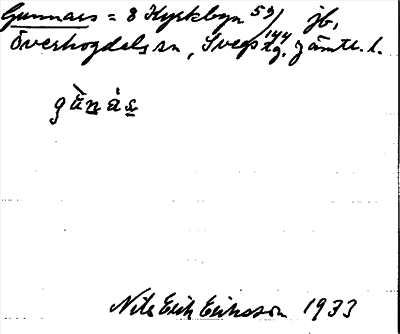 Gunnars = 8 Kyrkbyn 59/144 jb,
Överhogdals sn, Svegs tg. Jämtl. l.
gànás
Nils Erik Eriksson 1933